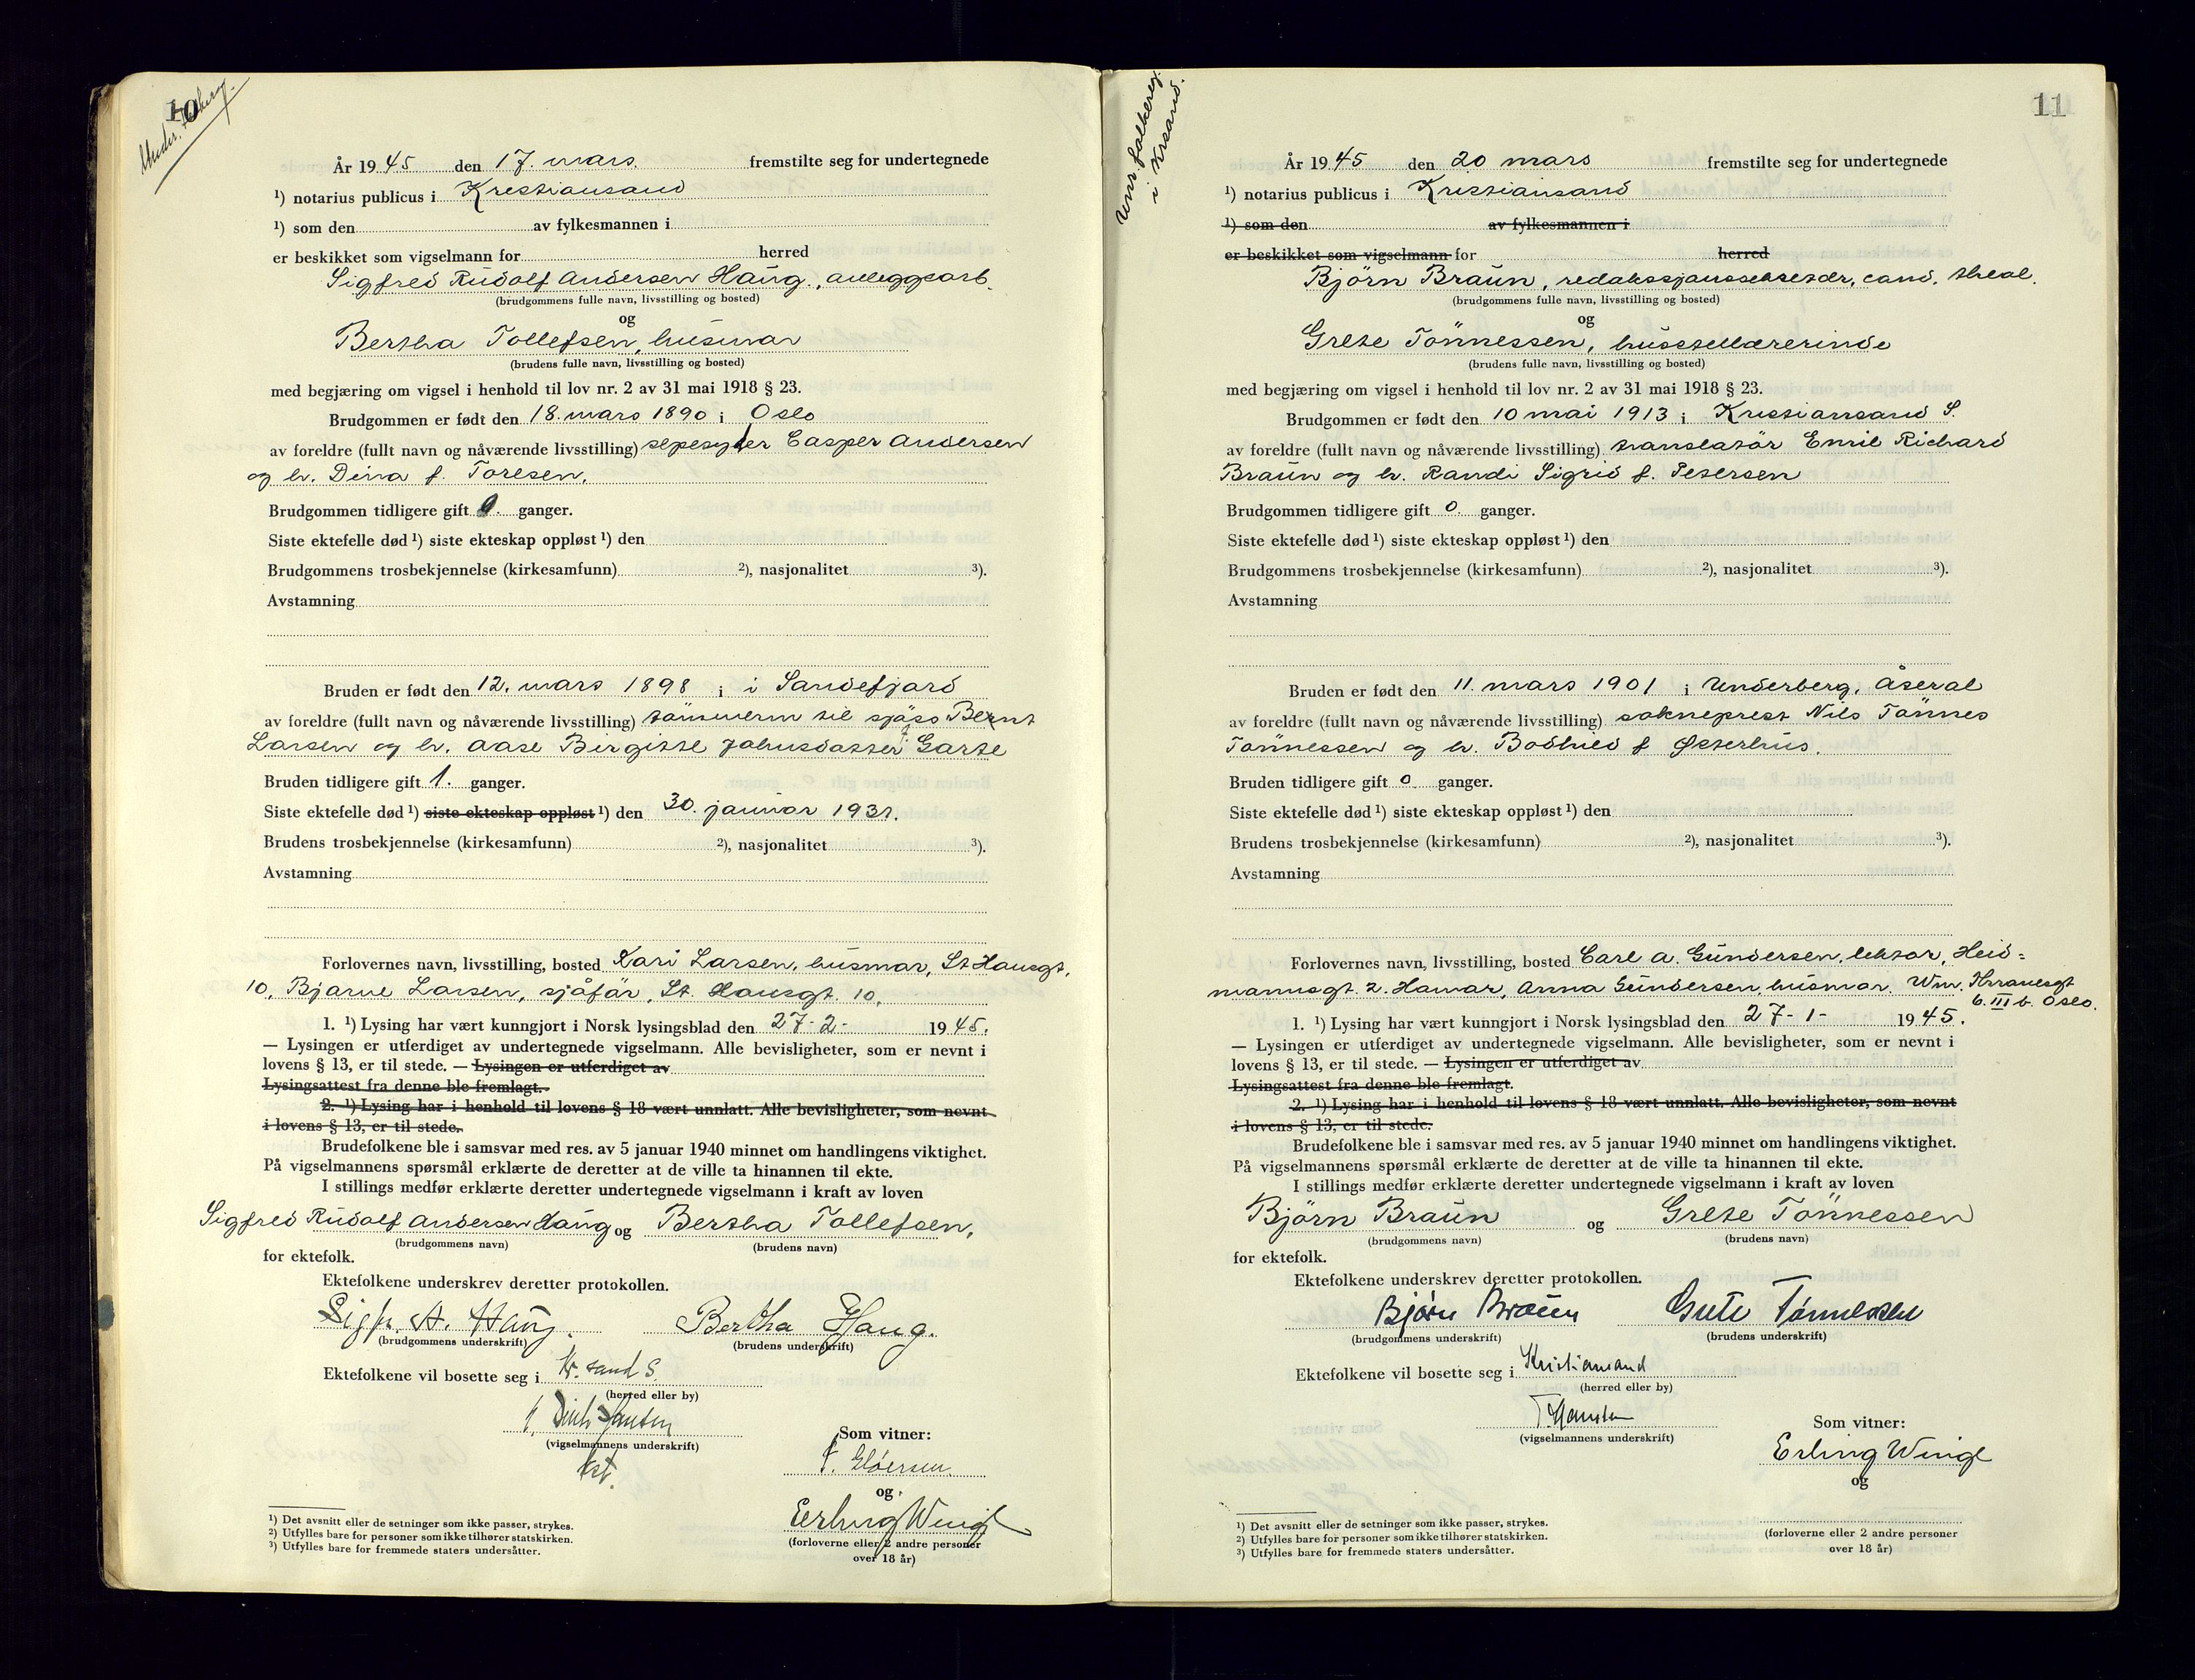 10
År 1945 den 17. mars. fremstilte seg for undertegnede
¹) notarius publicus i Kristiansand
¹) som den av fylkesmannen i
er beskikket som vigselmann for herred
Sigfred Rudolf Andersen Haug, anleggsarb.
(brudgommens fulle navn, livsstilling og bosted)
og
Bertha Tollefsen, husmor
(brudens fulle navn, livsstilling og bosted)
med begjæring om vigsel i henhold til lov nr. 2 av 31 mai 1918 § 23.
Brudgommen er født den 18. mars 1890 i Oslo
av foreldre (fullt navn og nåværende livsstilling) Casper Andersen
og h. Dina f. Toresen.
Brudgommen tidligere gift 0. ganger.
Siste ektefelle død ¹) siste ekteskap oppløst ¹) den
Brudgommens trosbekjennelse (kirkesamfunn) ²), nasjonalitet ³).
Avstamning
Bruden er født den 12. mars 1898 i i Sandefjord
av foreldre (fullt navn og nåværende livsstilling) tömmerm til sjöss Bernt
Larsen og h. Aase Birgitte Johnsdatter Garte
Bruden tidligere gift 1. ganger.
Siste ektefelle død ¹) siste ekteskap oppløst ¹) den 30. januar 1931.
Brudens trosbekjennelse (kirkesamfunn) ²), nasjonalitet ³).
Avstamning
Forlovernes navn, livsstilling, bosted Kari Larsen, husmor, St Hansgt.
10, Bjarne Larsen, sjåfør, St. Hansgt. 10.
1. ¹) Lysing har vært kunngjort i Norsk lysingsblad den 27-2- 1945.
— Lysingen er utferdiget av undertegnede vigselmann. Alle bevisligheter, som er nevnt i
lovens § 13, er til stede. — Lysingen er utferdiget av
Lysingsattest fra denne ble fremlagt.
2. ¹) Lysing har i henhold til lovens § 18 vært unnlatt. Alle bevisligheter, som nevnt
i lovens § 13, er til stede.
Brudefolkene ble i samsvar med res. av 5 januar 1940 minnet om handlingens viktighet.
På vigselmannens spørsmål erklærte de deretter at de ville ta hinannen til ekte.
I stillings medfør erklærte deretter undertegnede vigselmann i kraft av loven
Sigfred Rudolf Andersen Haug og Bertha Tollefsen,
(brudgommens navn) (brudens navn)
for ektefolk.
Ektefolkene underskrev deretter protokollen.
Sigfr. A. Haug. Bertha Haug.
(brudgommens underskrift) (brudens underskrift)
Ektefolkene vil bosette seg i Kr.sand S.
(herred eller by)
(vigselmannens underskrift)
kst.
Som vitner:
F. Gløersen.
og
Erling Wingl
(forloverne eller 2 andre personer
over 18 år)
¹) Det avsnitt eller de setninger som ikke passer, strykes.
²) Utfylles bare for personer som ikke tilhører statskirken.
³) Utfylles bare for fremmede staters undersåtter.
11
Unr. folkereg.
i Krsand.
År 1945 den 20 mars fremstilte seg for undertegnede
¹) notarius publicus i Kristiansand
¹) som den av fylkesmannen i
er beskikket som vigselmann for herred
Björn Braun, redaksjonssekretær, cand. theol.
(brudgommens fulle navn, livsstilling og bosted)
og
Grete Tönnessen, husstellærerinde
(brudens fulle navn, livsstilling og bosted)
med begjæring om vigsel i henhold til lov nr. 2 av 31 mai 1918 § 23.
Brudgommen er født den 10 mai 1913 i Kristiansand S.
av foreldre (fullt navn og nåværende livsstilling) translatör Emil Richard
Braun og h. Randi Sigrid f. Petersen
Brudgommen tidligere gift 0. ganger.
Siste ektefelle død ¹) siste ekteskap oppløst ¹) den
Brudgommens trosbekjennelse (kirkesamfunn) ²), nasjonalitet ³).
Avstamning
Bruden er født den 11. mars 1901 i Underberg, Åseral
av foreldre (fullt navn og nåværende livsstilling) sokneprest Nils Tönnes
Tönnessen og h. Bodhild f Østerhus.
Bruden tidligere gift 0 ganger.
Siste ektefelle død ¹) siste ekteskap oppløst ¹) den
Brudens trosbekjennelse (kirkesamfunn) ²), nasjonalitet ³).
Avstamning
Forlovernes navn, livsstilling, bosted Carl A. Gundersen, lektor, Heid=
mannsgt. 2. Hamar, Anna Gundersen, husmor. Wm. Thranesgt
6. III b. Oslo.
1. ¹) Lysing har vært kunngjort i Norsk lysingsblad den 27-1- 1945.
— Lysingen er utferdiget av undertegnede vigselmann. Alle bevisligheter, som er nevnt i
lovens § 13, er til stede. — Lysingen er utferdiget av
Lysingsattest fra denne ble fremlagt.
2. ¹) Lysing har i henhold til lovens § 18 vært unnlatt. Alle bevisligheter, som nevnt
i lovens § 13, er til stede.
Brudefolkene ble i samsvar med res. av 5 januar 1940 minnet om handlingens viktighet.
På vigselmannens spørsmål erklærte de deretter at de ville ta hinannen til ekte.
I stillings medfør erklærte deretter undertegnede vigselmann i kraft av loven
Björn Braun og Grete Tönnessen
(brudgommens navn) (brudens navn)
for ektefolk.
Ektefolkene underskrev deretter protokollen.
Bjørn Braun Grete Tønnessen
(brudgommens underskrift) (brudens underskrift)
Ektefolkene vil bosette seg i Kristiansand
(herred eller by)
(vigselmannens underskrift)
Som vitner:
Erling Wingl
og
(forloverne eller 2 andre personer
over 18 år)
¹) Det avsnitt eller de setninger som ikke passer, strykes.
²) Utfylles bare for personer som ikke tilhører statskirken.
³) Utfylles bare for fremmede staters undersåtter.